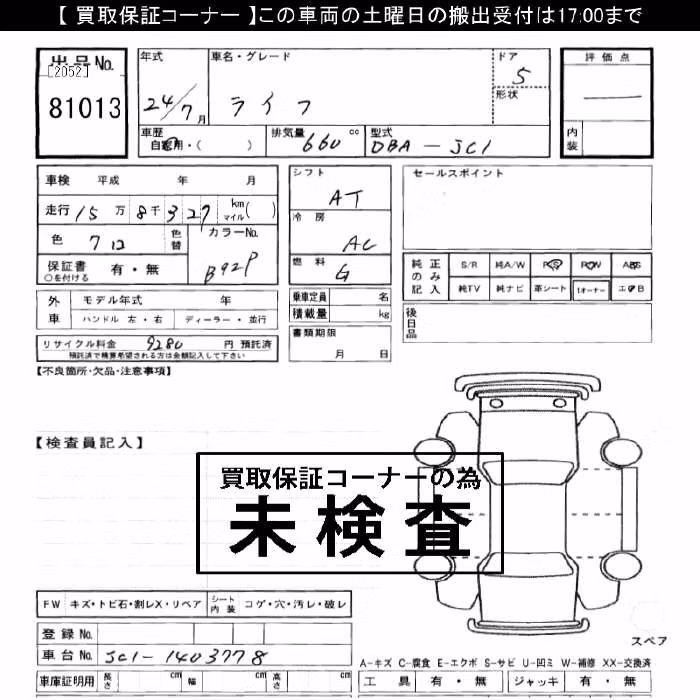 【 買取保証コーナー 】この車両の土曜日の搬出受付は17:00まで
出品No.
[2052]
81013
年式
24/7月
車名・グレード
ライフ
ドア
5
形状
評価点
内装
車歴
自家用・( )
排気量
660 cc
型式
DBA-JC1
車検 平成 年 月
走行 15万8千327 km マイル( )
色 クロ 色替
カラーNo.
B92P
保証書 有・無
○を付ける
シフト
AT
冷房
AC
燃料
G
セールスポイント
純正のみ記入
S/R 純A/W P/S P/W ABS
純TV 純ナビ 革シート 1オーナー エアB
外車
モデル年式 年
ハンドル 左・右 ディーラー・並行
乗車定員 名
積載量 kg
書類期限
月 日
後日品
リサイクル料金 9280 円 預託済
預託済で精算希望される方は金額記入して下さい
【不良箇所・欠品・注意事項】
【検査員記入】
買取保証コーナーの為
未検査
FW キズ・トビ石・割レX・リペア
シート内装 コゲ・穴・汚レ・破レ
登録No.
車台No. JC1-1403778
車庫証明用 長さ cm 幅 cm 高さ cm
スペア
A-キズ C-腐食 E-エクボ S-サビ U-凹ミ W-補修 XX-交換済
工具 有・無 ジャッキ 有・無